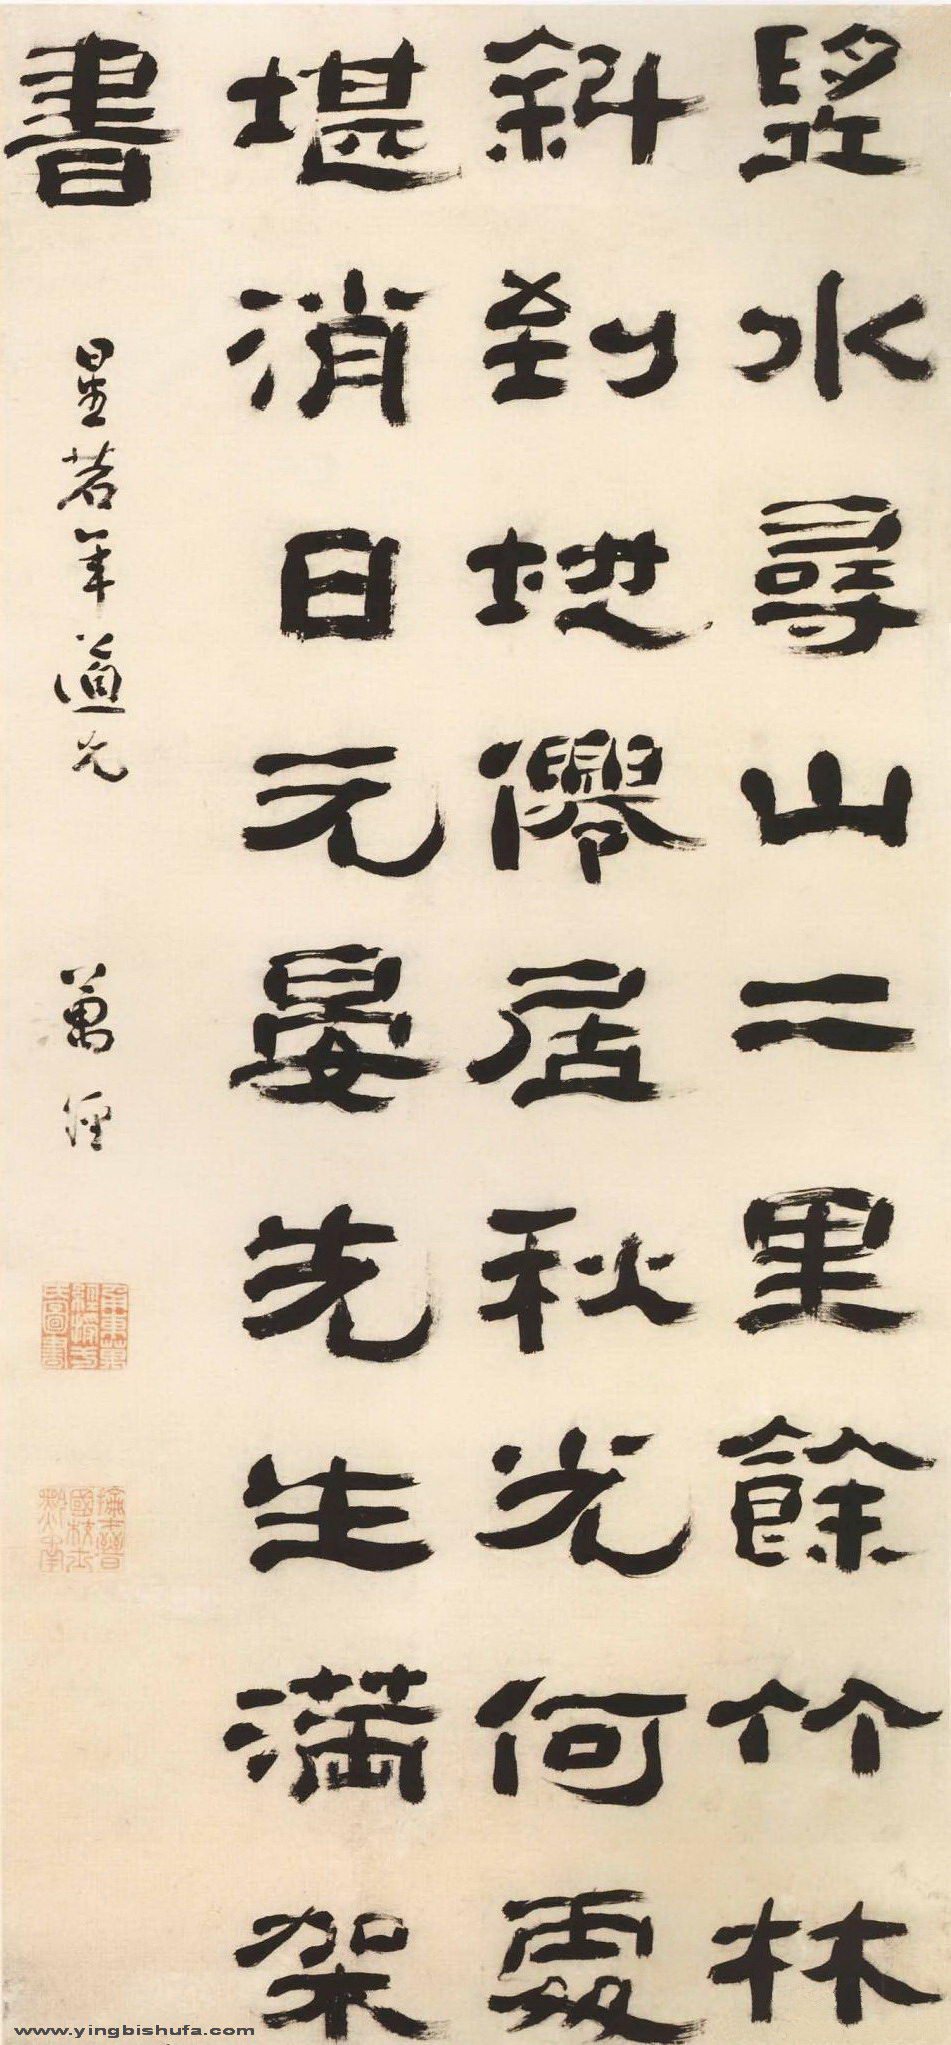 朢水尋山二里餘竹林
斜到地僊居秋光何處
堪消日元晏先生滿架
書
星若年道兄 萬經
www.yingbishufa.com